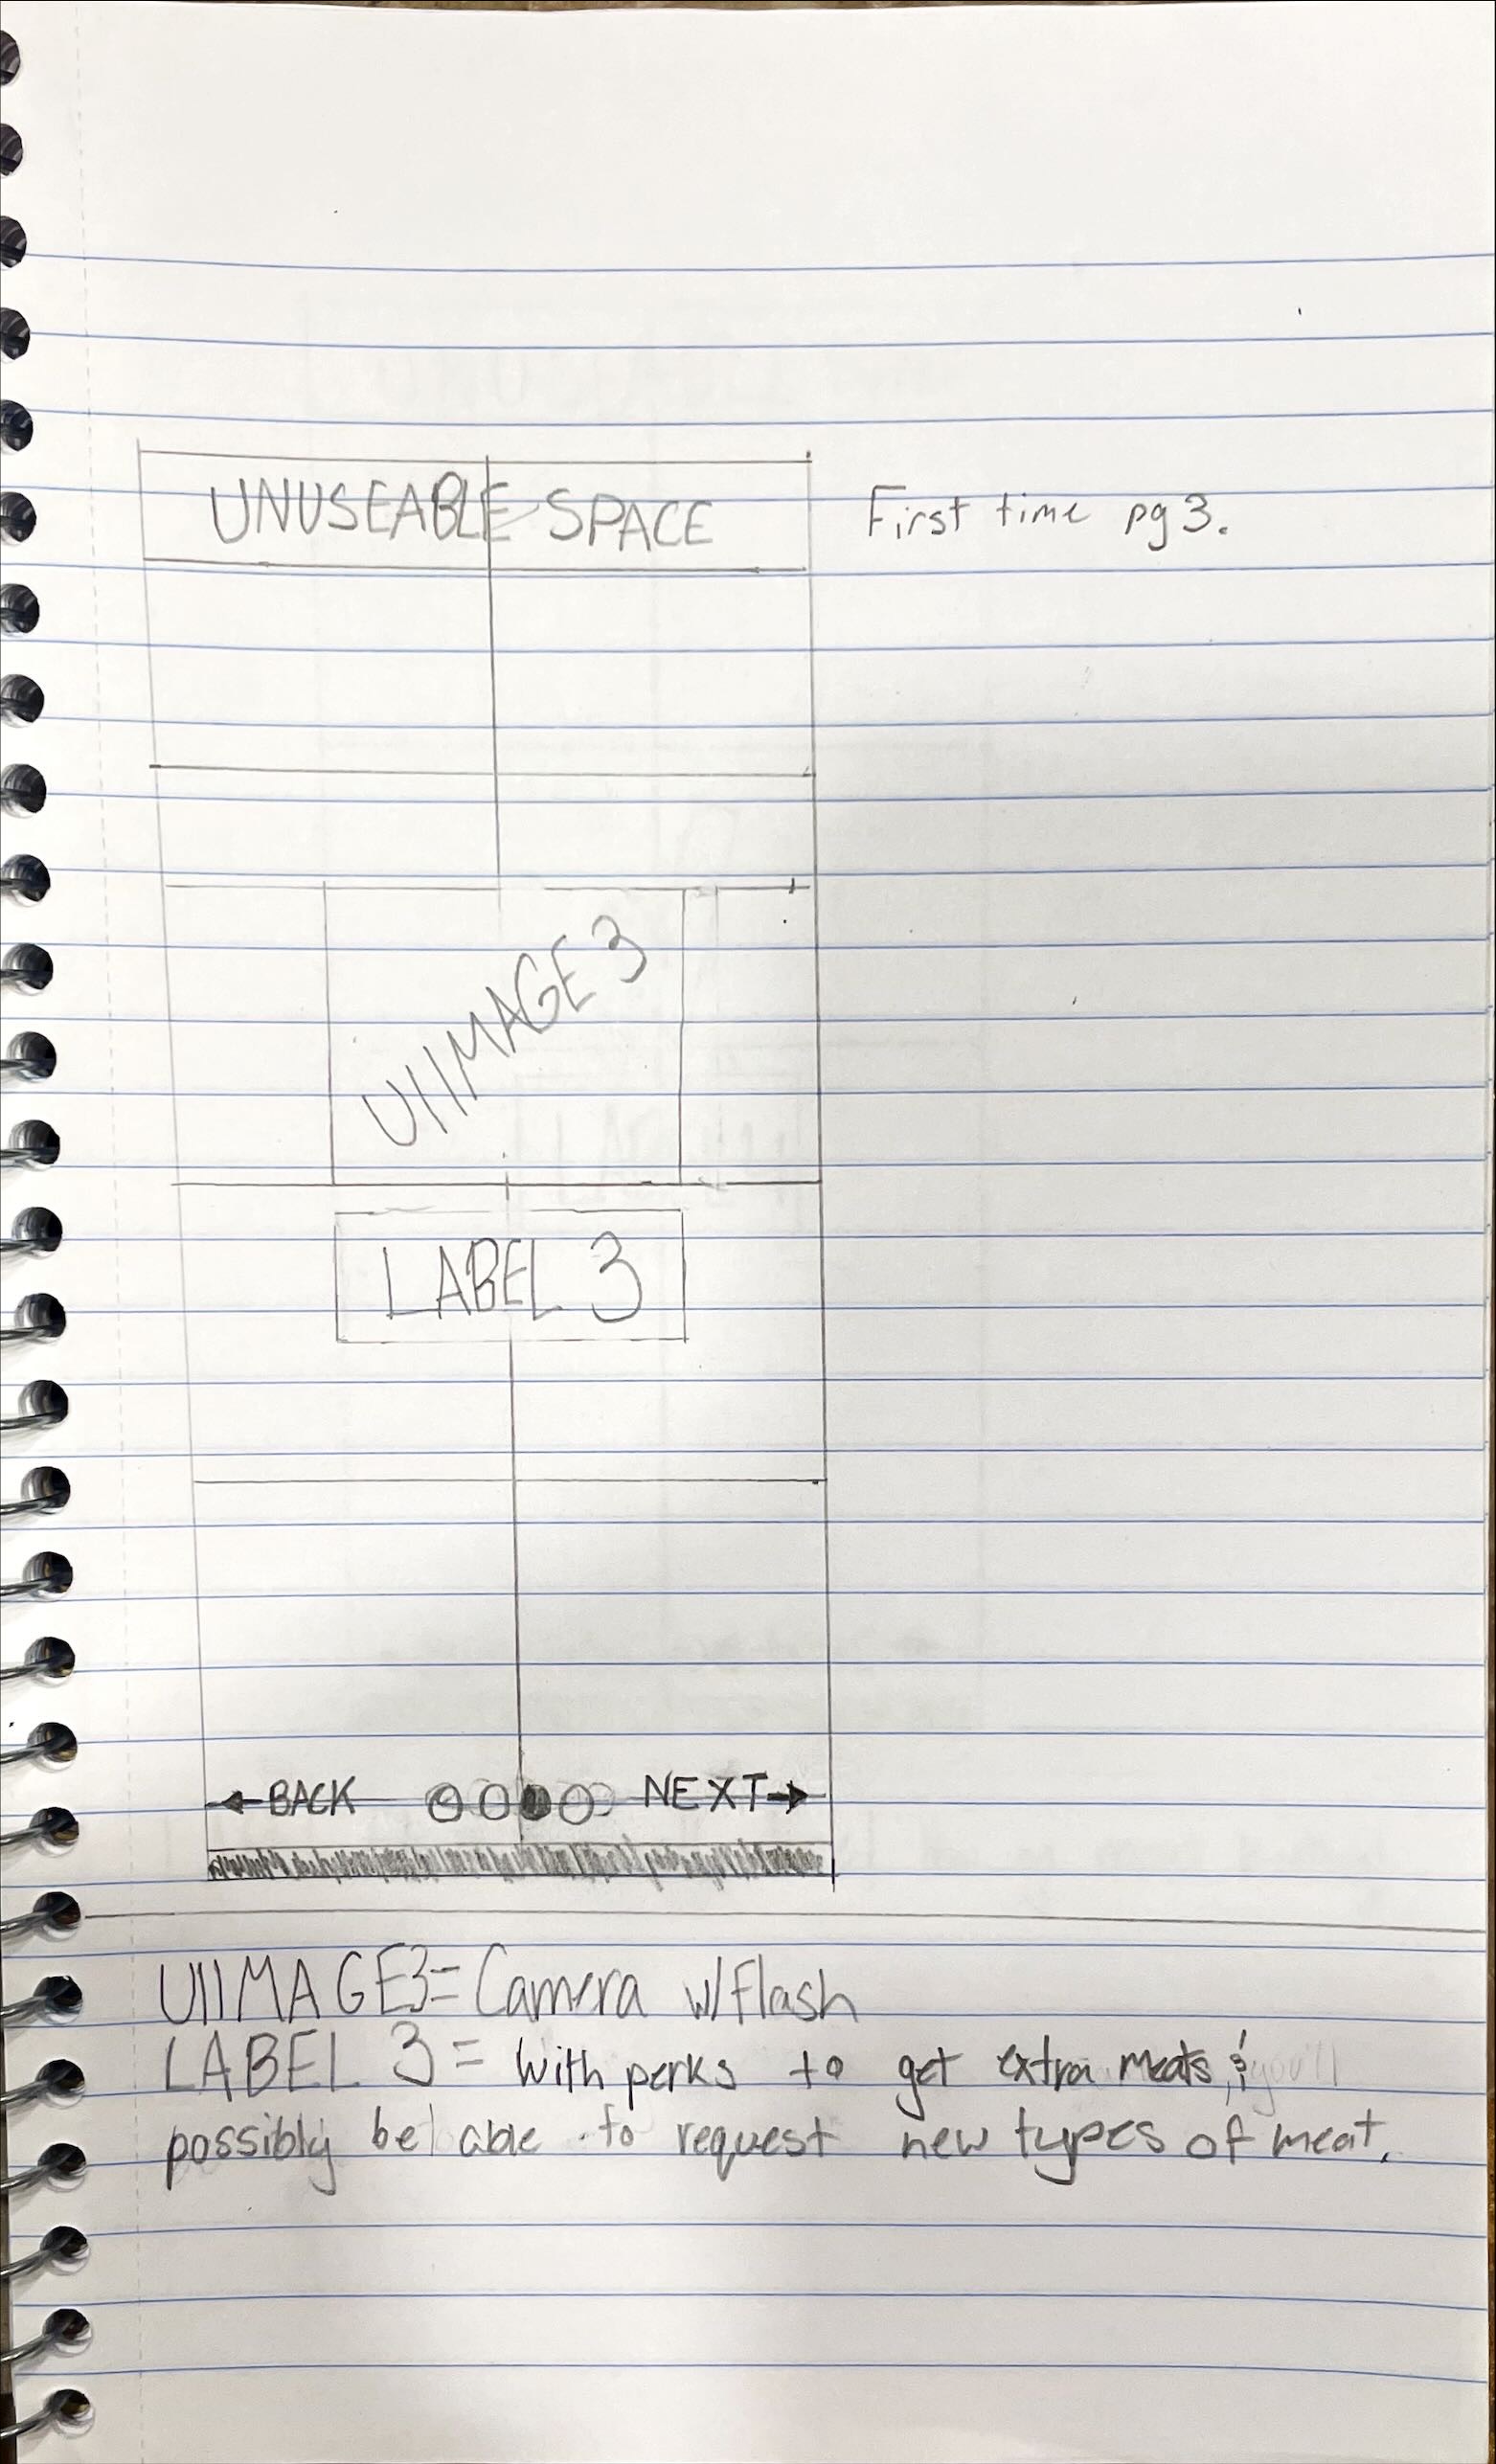 UNUSEABLE SPACE
First time pg 3.
UIIMAGE 3
LABEL 3
←BACK
NEXT→
UIIMAGE3= Camera w/Flash
LABEL 3 = with perks to get extra meats, & you'll
possibly be able to request new types of meat.